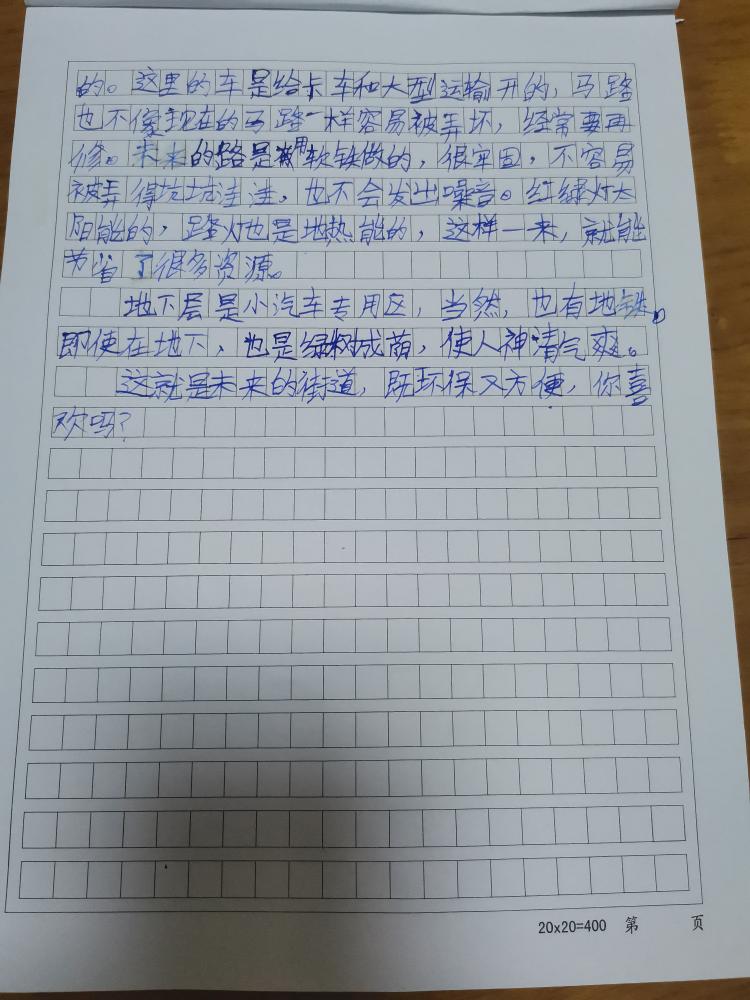 的。这里的车是给卡车和大型运输开的，马路
也不像现在的马路一样容易被弄坏，经常要再
修。未来的路是用软铁做的，很牢固，不容易
被弄得坑坑洼洼，也不会发出噪音。红绿灯太
阳能的，路灯也是地热能的，这样一来，就能
节省了很多资源。
地下层是小汽车专用区，当然，也有地铁。
即使在地下，也是绿树成荫，使人神清气爽。
这就是未来的街道，既环保又方便，你喜
欢吗？
20x20=400 第 页